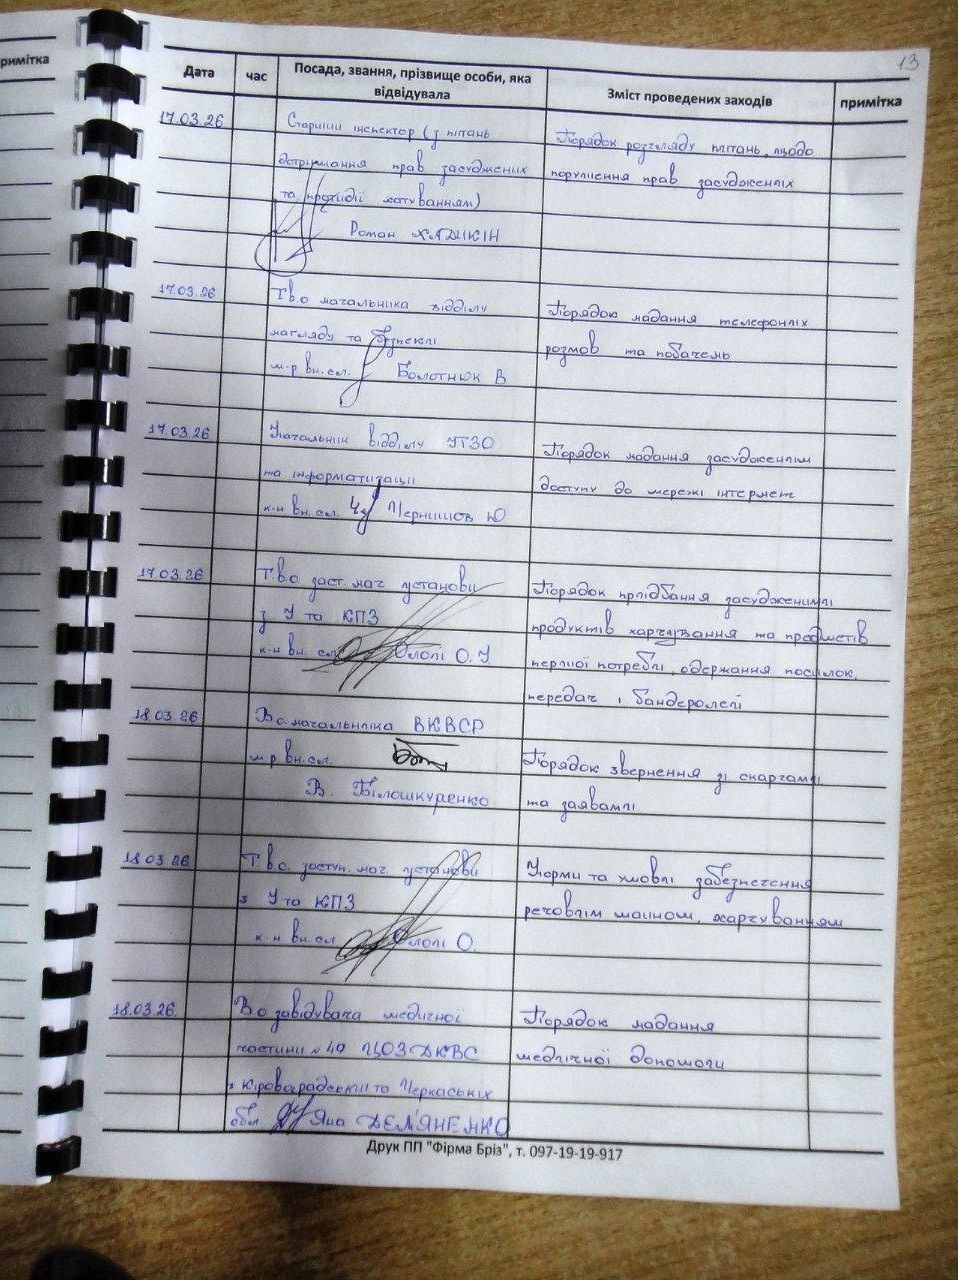 13
римітка
Дата час Посада, звання, прізвище особи, яка відвідувала Зміст проведених заходів примітка
17.03.26 Старший інспектор (з питань Порядок розгляду питань, щодо
дотримання прав засуджених порушення прав засуджених
та протидії катуванням)
Роман ХАДИКІН
17.03.26 Тв.о начальника відділу Порядок надання телефонних
нагляду та безпеки розмов та побачень
м-р вн.сл. Болотнюк В
17.03.26 Начальник відділу ІТЗО Порядок надання засудженим
та інформатизації доступу до мережі інтернет
к-н вн. сл. Чернишов Ю
17.03.26 Т.в.о. заст. нач. установи Порядок придбання засудженими
з І та КПЗ продуктів харчування та предметів
к-н вн. сл. О. І першої потреби, одержання посилок,
передач і бандеролей
18.03.26 Во. начальника ВКВСР
м-р вн.сл. Порядок звернення зі скаргами
В. Білошкуренко та заявами
18.03.26 Т.в.о. заступ. нач. установи Норми та умови забезпечення
з І та КПЗ речовим майном, харчуванням
к-н вн. сл. О.
18.03.26. Во завідувача медичної Порядок надання
частини №49 ЦОЗ ДКВС медичної допомоги
в Кіровоградській та Черкаських
обл Яна ДЕМ'ЯНЕНКО
Друк ПП "Фірма Бріз", т. 097-19-19-917